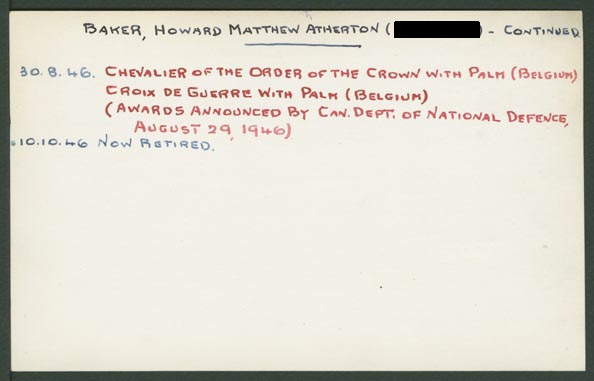 BAKER, HOWARD MATTHEW ATHERTON ( ) - CONTINUED.
30.8.46. CHEVALIER OF THE ORDER OF THE CROWN WITH PALM (BELGIUM)
CROIX DE GUERRE WITH PALM (BELGIUM)
(AWARDS ANNOUNCED BY CAN. DEPT. OF NATIONAL DEFENCE,
AUGUST 29, 1946)
10.10.46 NOW RETIRED.